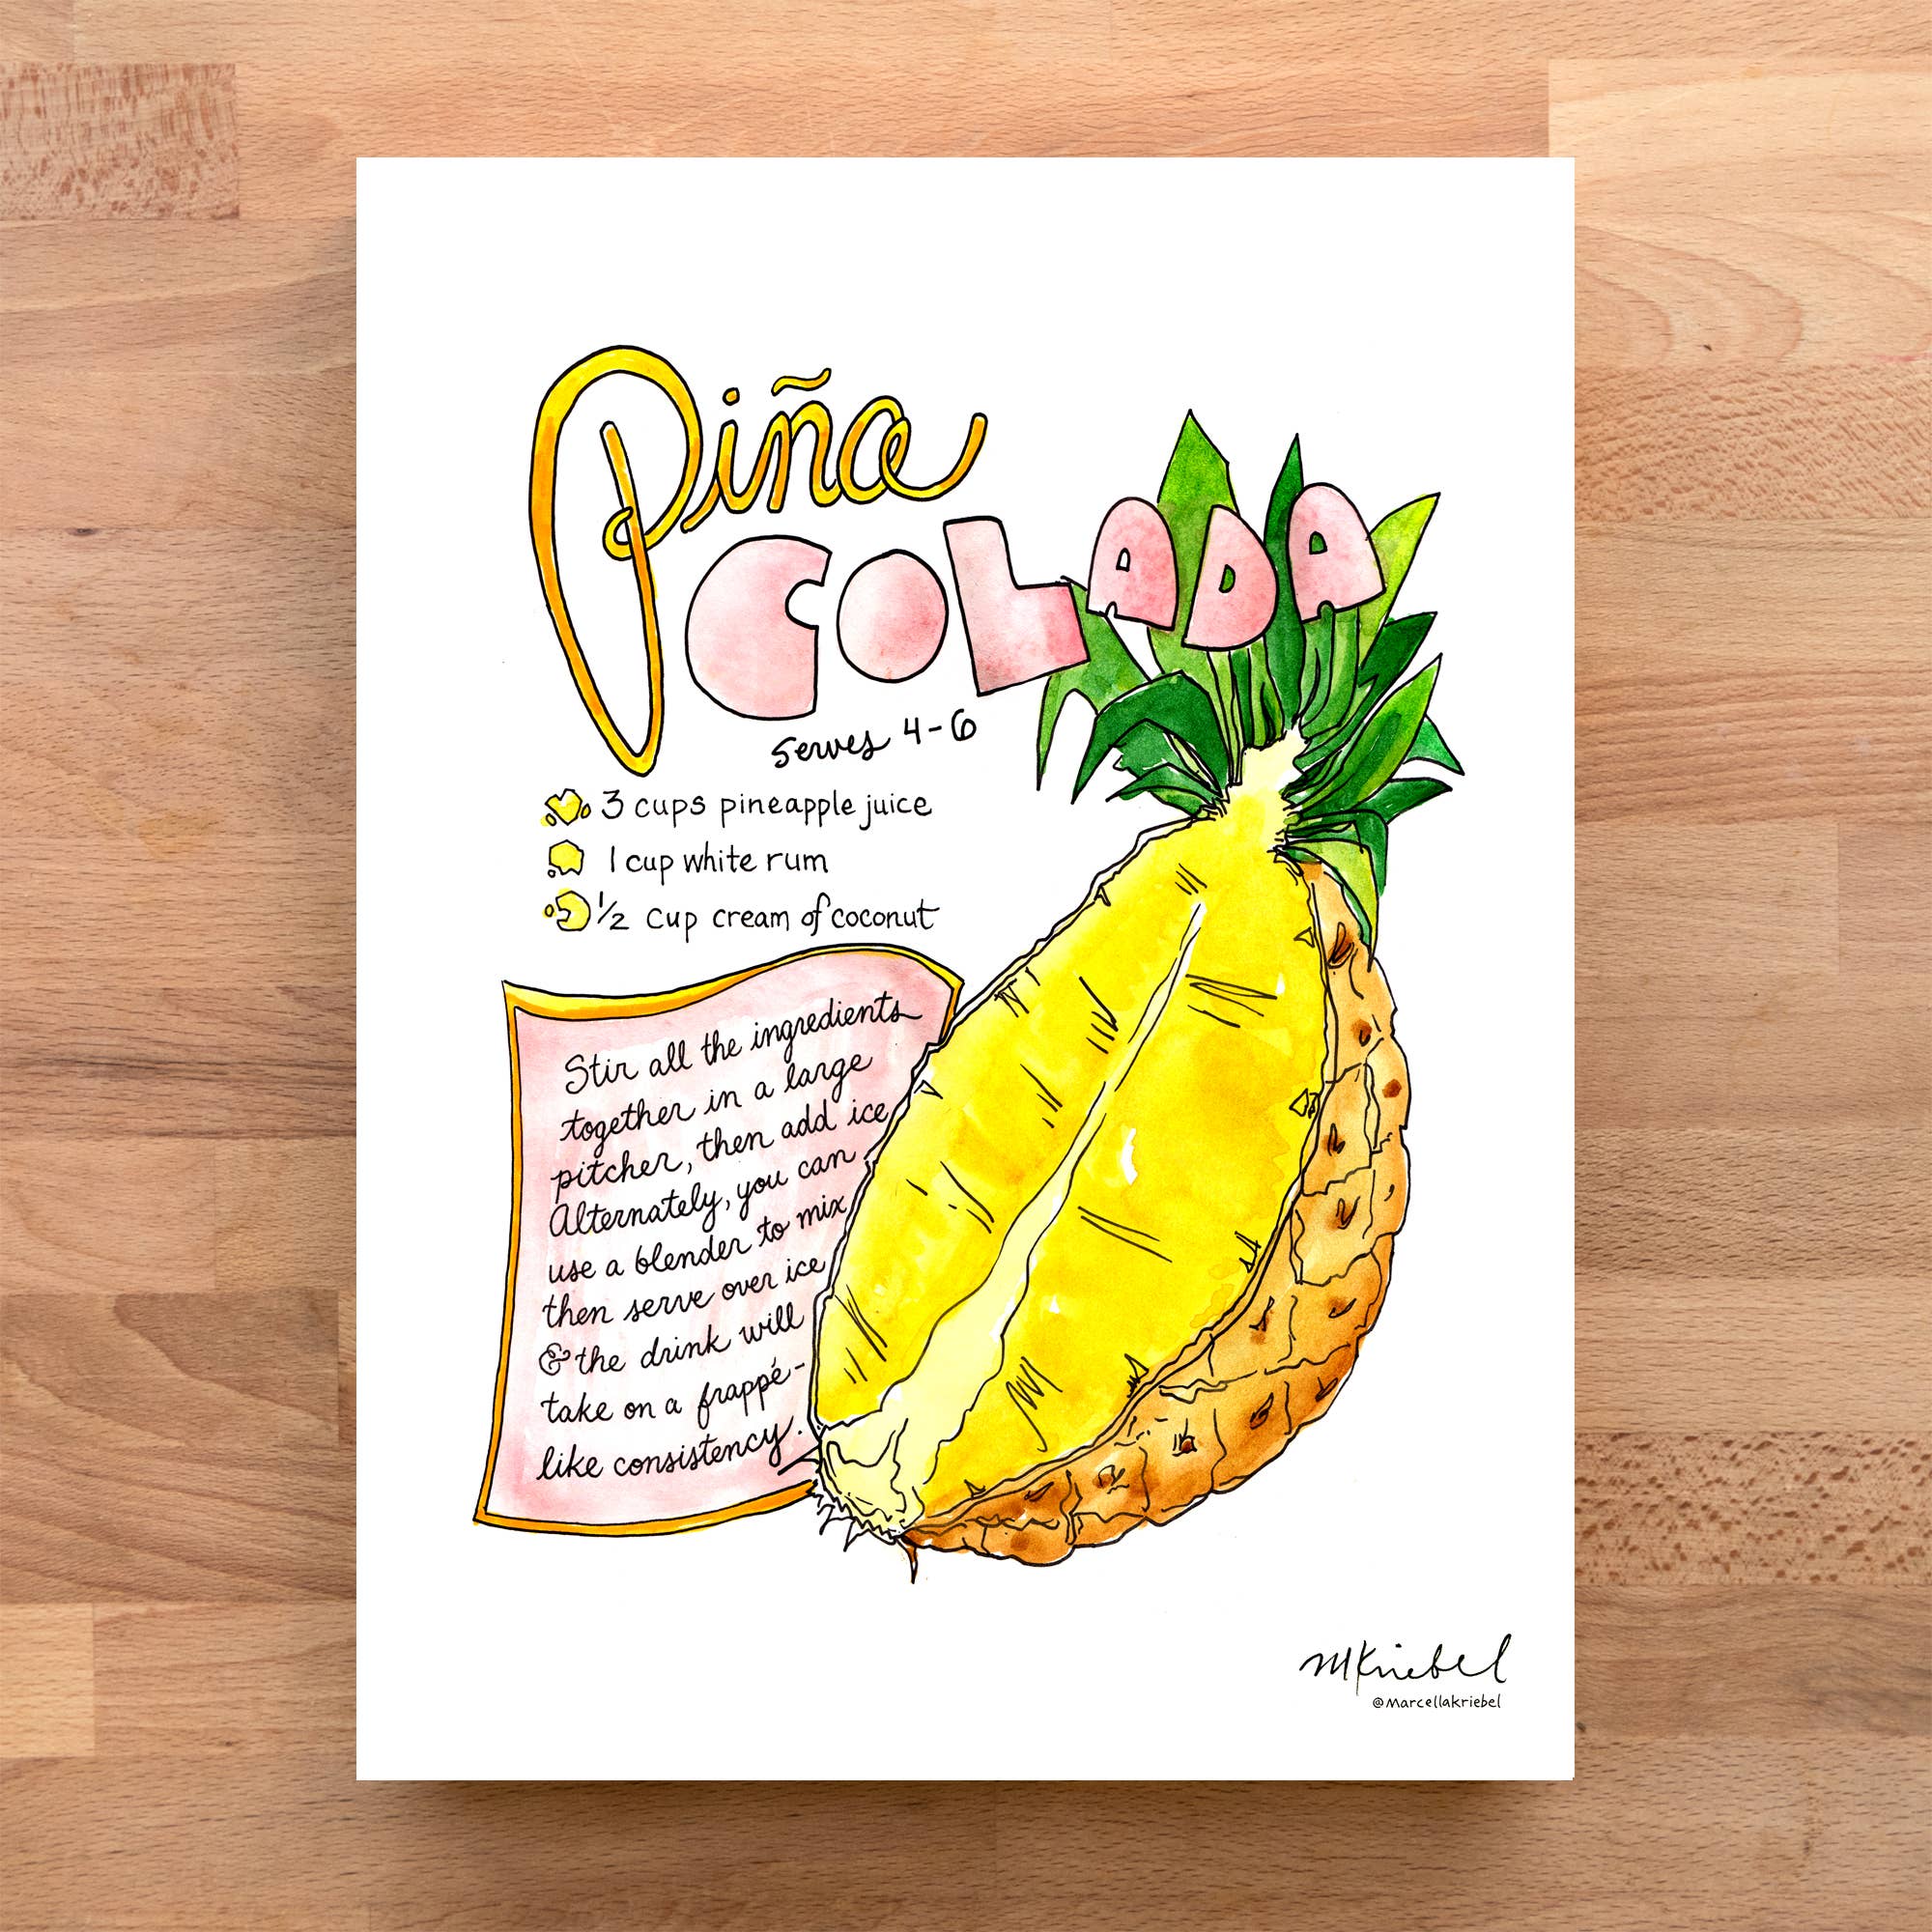 Piña
COLADA
serves 4-6
3 cups pineapple juice
1 cup white rum
1/2 cup cream of coconut
Stir all the ingredients
together in a large
pitcher, then add ice
Alternately, you can
use a blender to mix
then serve over ice
& the drink will
take on a frappé-
like consistency.
MKriebel
@marcellakriebel